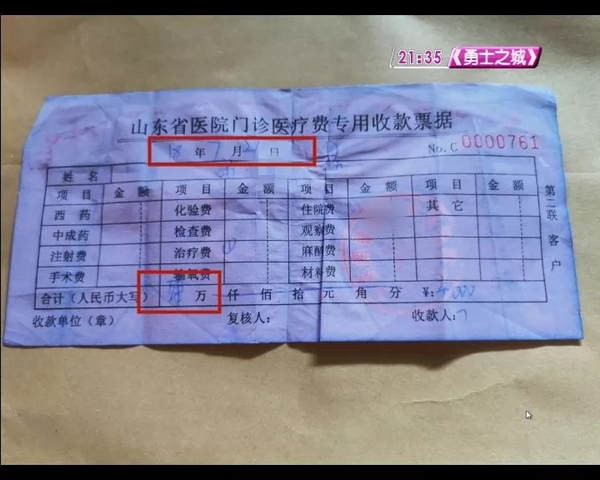 21:35 《勇士之城》
山东省医院门诊医疗费专用收款票据
18 年 7 月 日 No.C 0000761
姓名
项目 金额 项目 金额 项目 金额 金额
西药 化验费 住院费 其它
中成药 检查费 观察费
注射费 治疗费 麻醉费
手术费 输氧费 材料费
合计（人民币大写） 万 仟 佰 拾 元 角 分 ¥:
收款单位（章） 复核人: 收款人:
第二联 客户